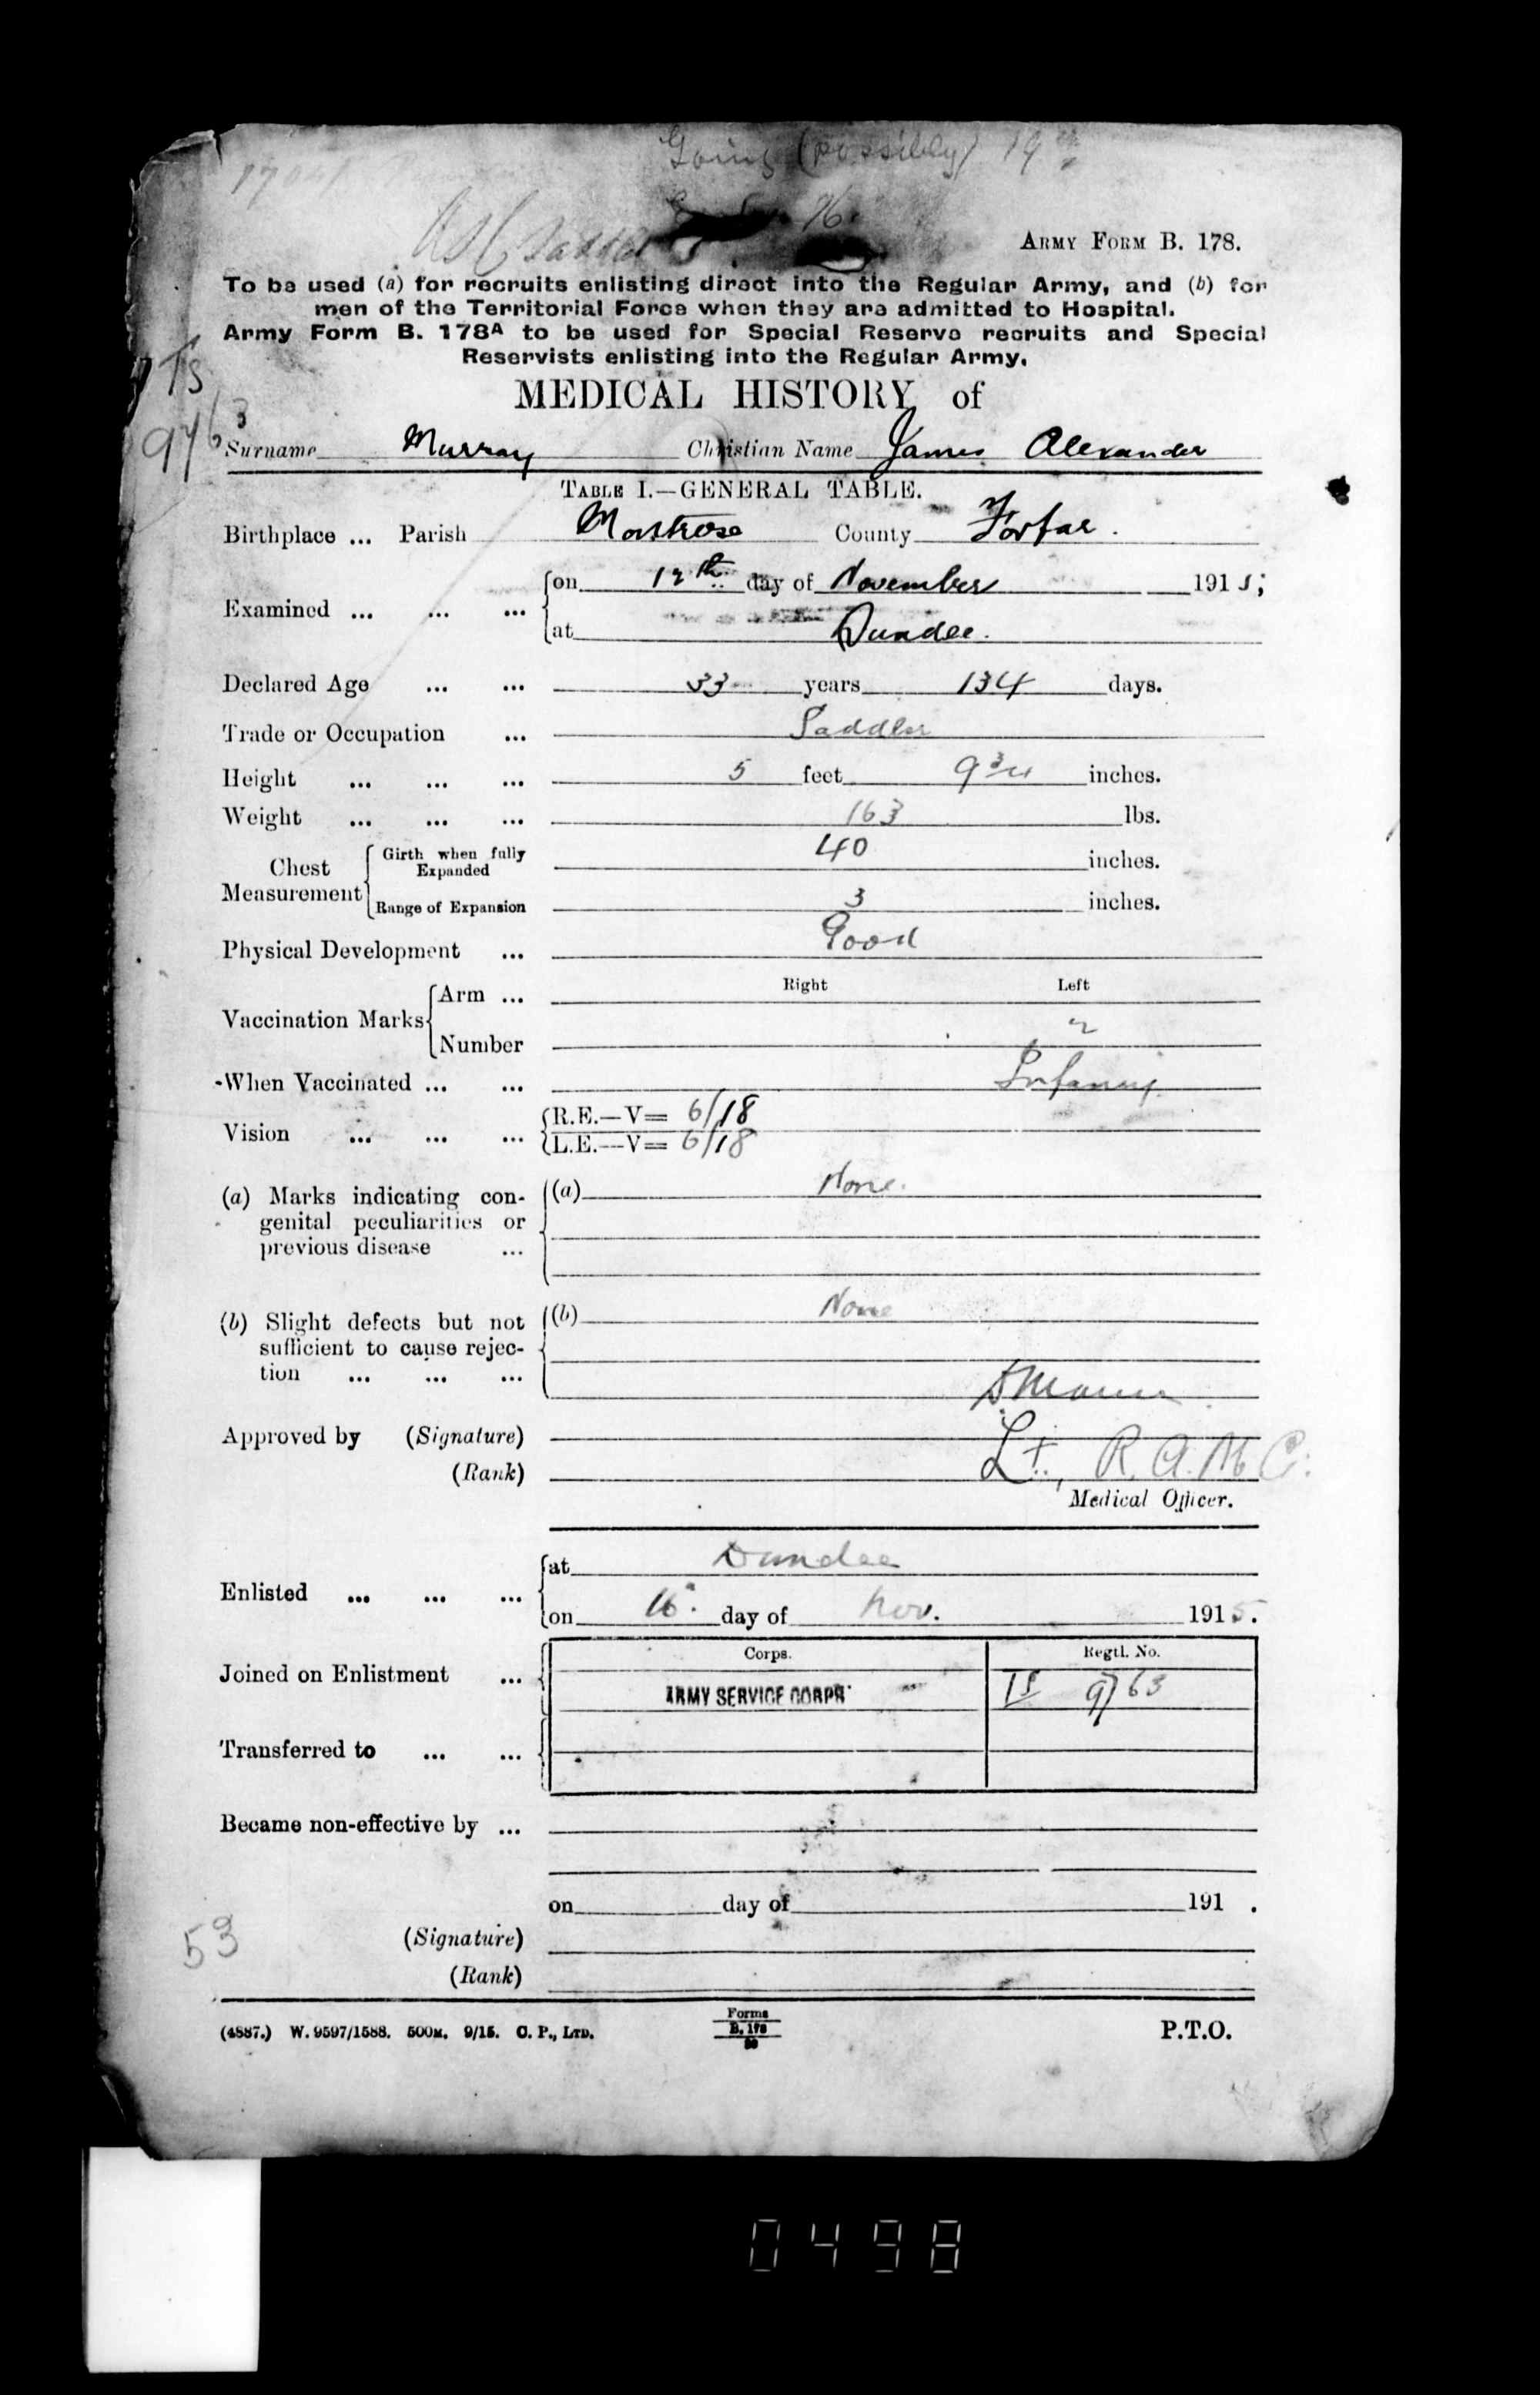 Going (possibly) 19th
ARMY FORM B. 178.
To be used (a) for recruits enlisting direct into the Regular Army, and (b) for
men of the Territorial Force when they are admitted to Hospital.
Army Form B. 178A to be used for Special Reserve recruits and Special
Reservists enlisting into the Regular Army.
TS
9763
MEDICAL HISTORY of
Surname Murray Christian Name James Alexander
TABLE I.—GENERAL TABLE.
Birthplace ... Parish Montrose County Forfar.
Examined ... ... ... on 12th day of November 1915;
at Dundee.
Declared Age ... ... 33 years 134 days.
Trade or Occupation ... Saddler
Height ... ... ... 5 feet 9 3/4 inches.
Weight ... ... ... 163 lbs.
Chest Measurement Girth when fully Expanded 40 inches.
Range of Expansion 3 inches.
Physical Development ... Good
Right Left
Vaccination Marks Arm ...
Number 2
When Vaccinated ... ... Infancy
Vision ... ... ... R.E.—V= 6/18
L.E.—V= 6/18
(a) Marks indicating con- (a) None.
genital peculiarities or
previous disease ...
(b) Slight defects but not (b) None
sufficient to cause rejec-
tion ... ... ...
Approved by (Signature)
(Rank) Lt., R.A.M.C.
Medical Officer.
Enlisted ... ... ... at Dundee
on 16 day of Nov. 1915.
Corps. Regtl. No.
Joined on Enlistment ... ARMY SERVICE CORPS TS 9763
Transferred to ... ...
Became non-effective by ...
on day of 191 .
53
(Signature)
(Rank)
(4887.) W. 9597/1588. 500M. 9/15. C. P., LTD. Forms B. 178 P.T.O.
0498